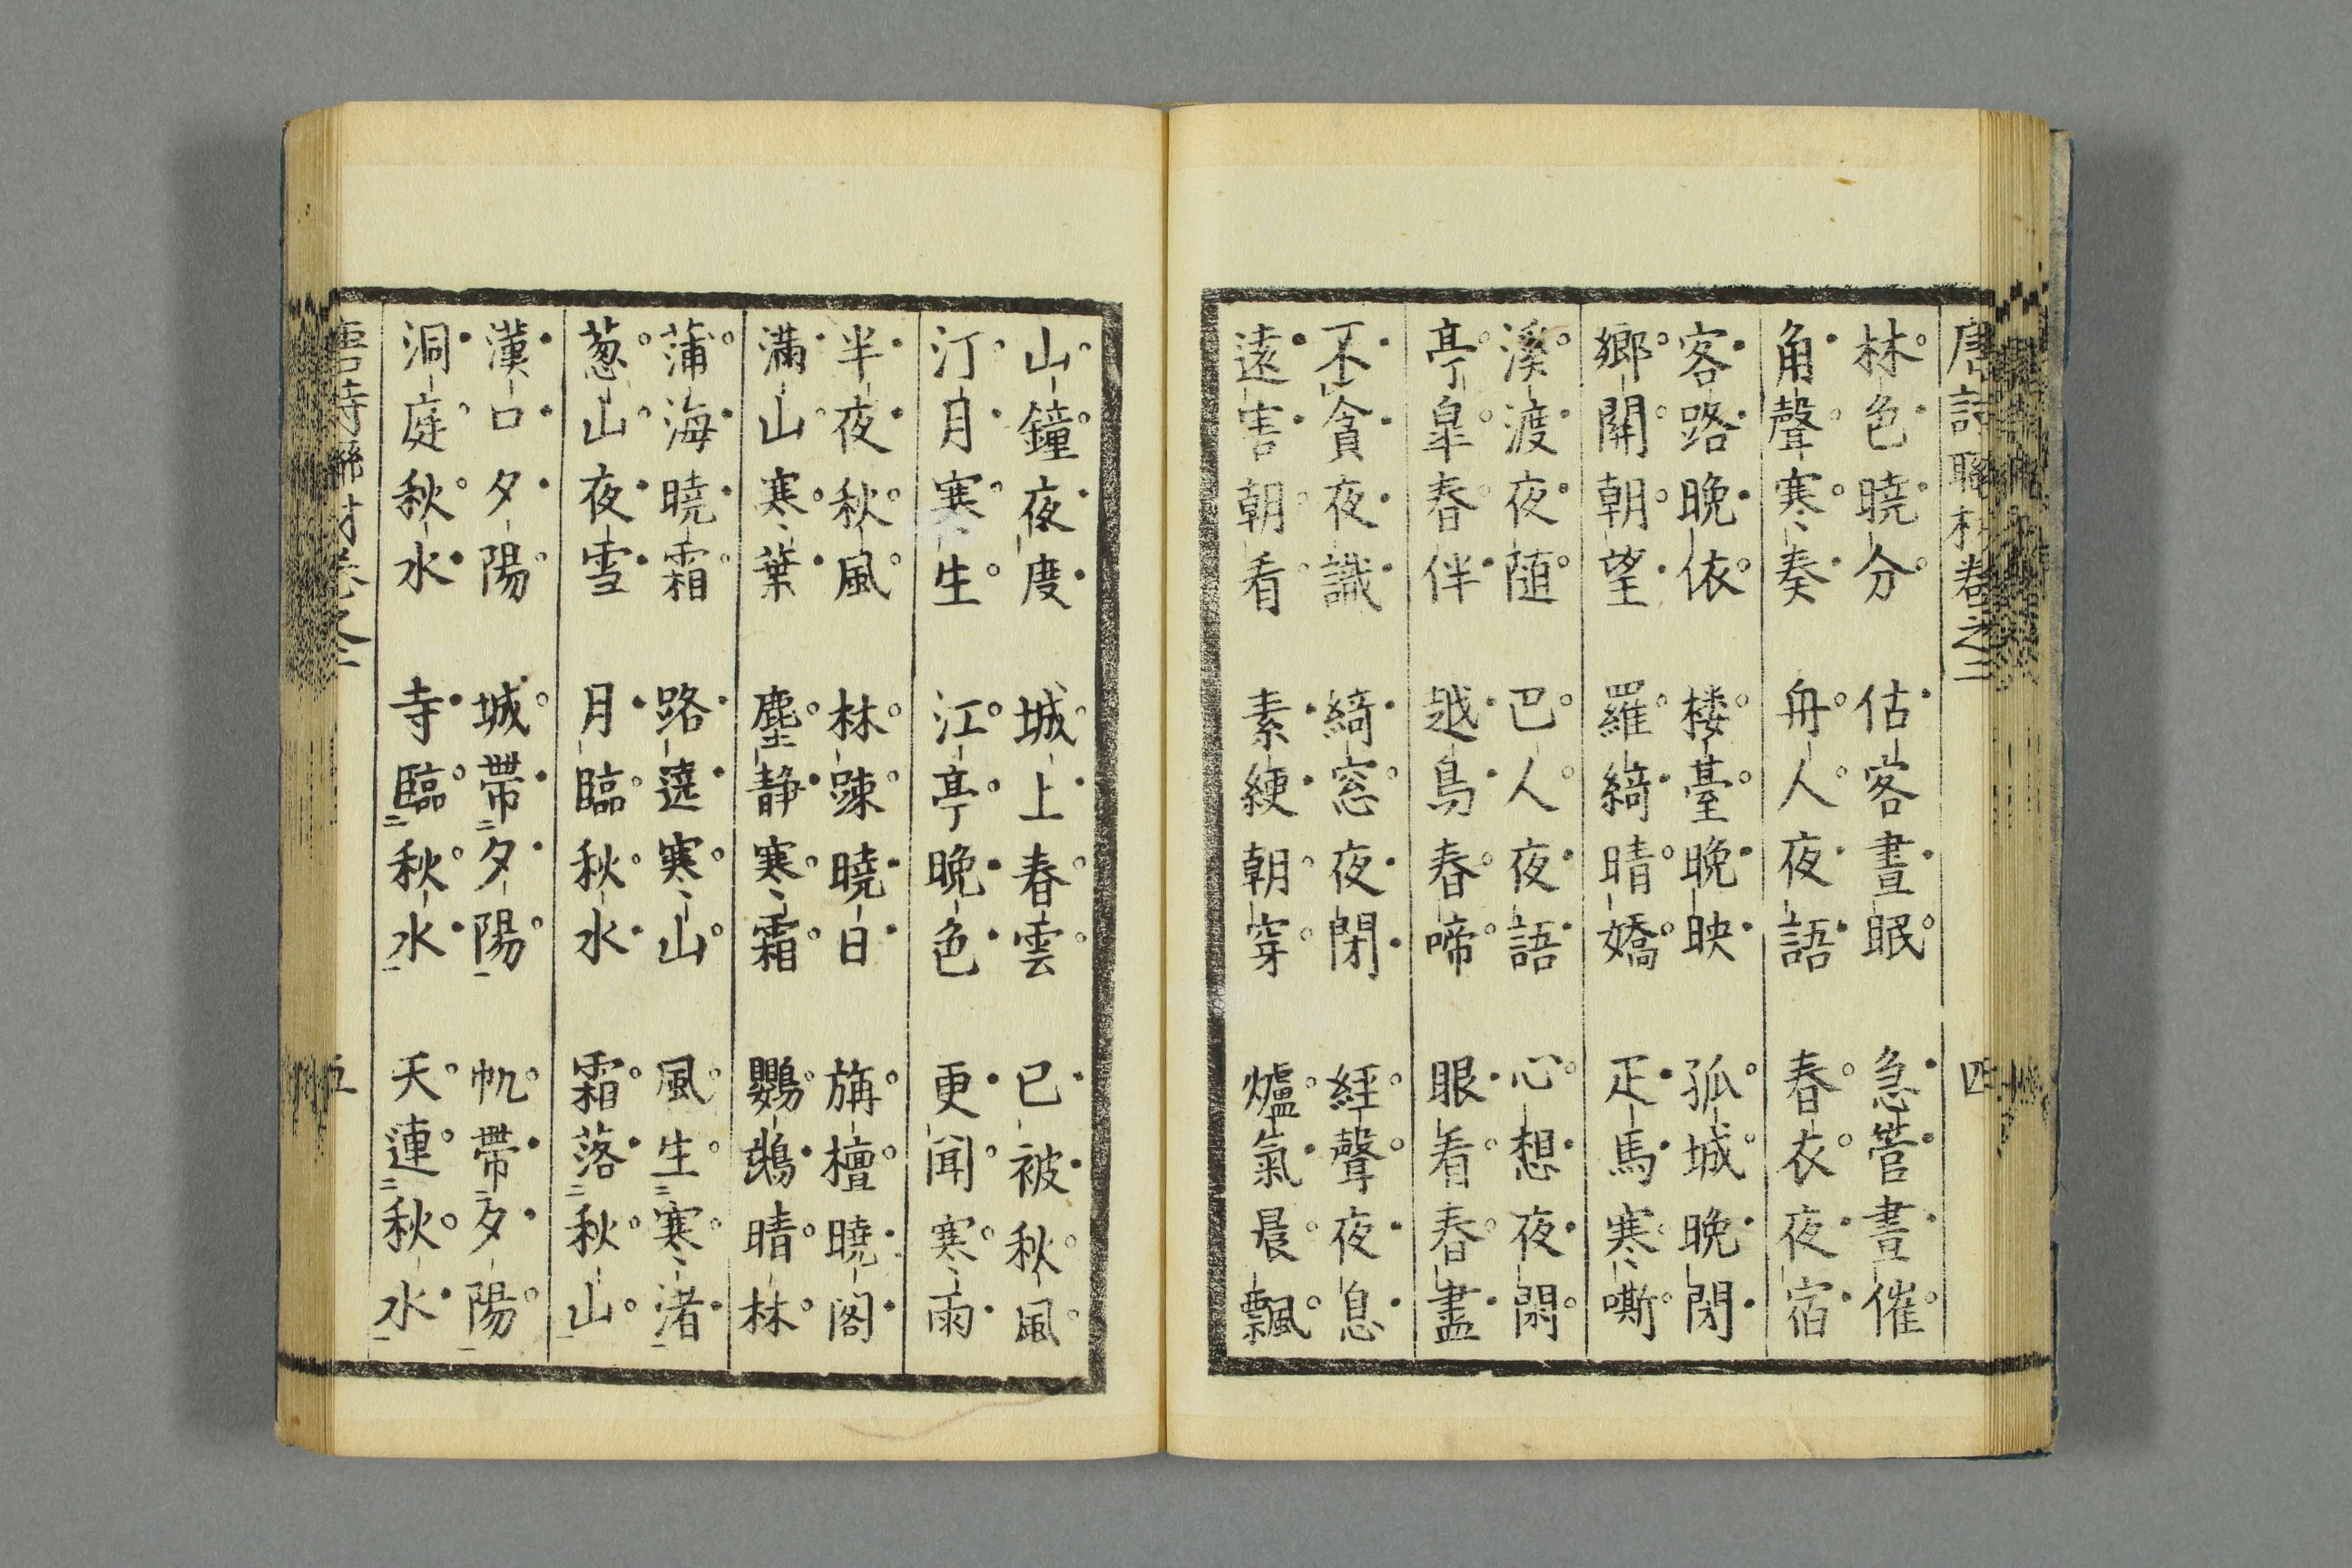 唐詩聯材卷之二
四
林色曉分 估客晝眠 急管晝催
角聲寒奏 舟人夜語 春衣夜宿
客路晚依 楼臺晚映 孤城晚閉
鄉關朝望 羅綺晴嬌 疋馬寒嘶
溪渡夜随 巴人夜語 心想夜閑
亭皐春伴 越鳥春啼 眼看春盡
不貪夜識 綺窓夜閉 経聲夜息
遠害朝看 素綆朝穿 爐氣晨飄
山鐘夜度 城上春雲 已被秋風
汀月寒生 江亭晚色 更聞寒雨
半夜秋風 林踈曉日 旃檀曉閣
滿山寒葉 塵静寒霜 鸚鵡晴林
蒲海曉霜 路遶寒山 風生二寒渚一
葱山夜雪 月臨秋水 霜落二秋山一
漢口夕陽 城帶二夕陽一 帆帶二夕陽一
洞庭秋水 寺臨二秋水一 天連二秋水一
唐詩聯材卷之二
五